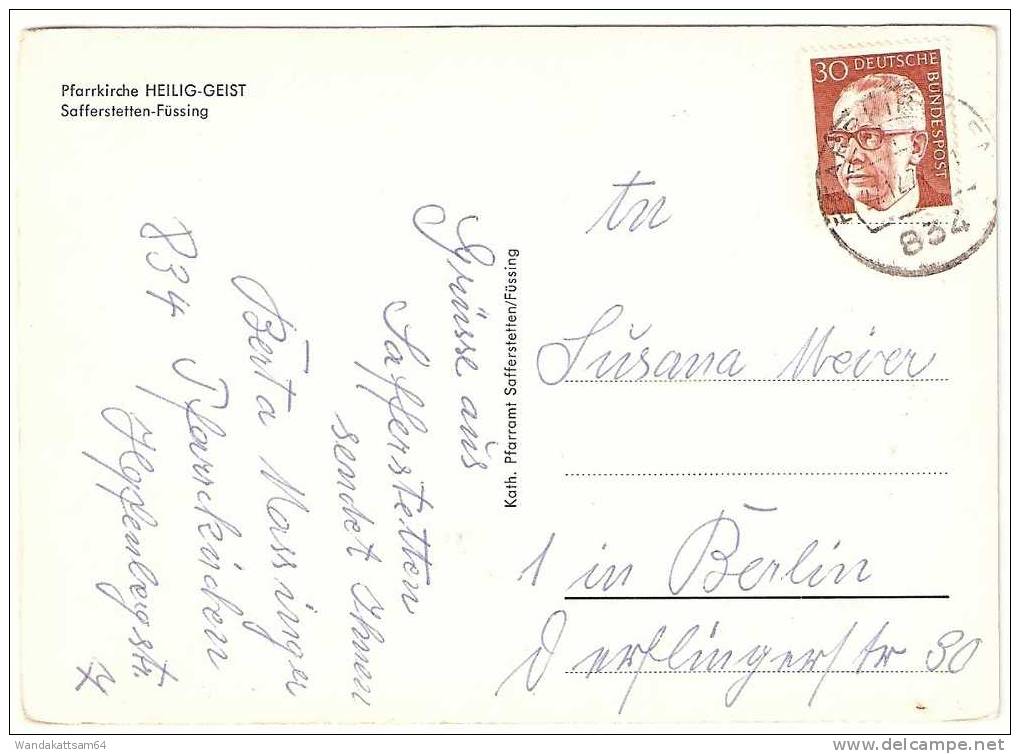 Pfarrkirche HEILIG-GEIST
Safferstetten-Füssing
Grüsse aus
Safferstetten
sendet Ihnen
Berta Massinger
834 Pfarrkirchen
Hopfenbergstr.
Kath. Pfarramt Safferstetten/Füssing
30 DEUTSCHE
BUNDESPOST
834
An
Susana Meier
1 in Berlin
Derflingerstr 30
Wandakattsam64
delcampe.net